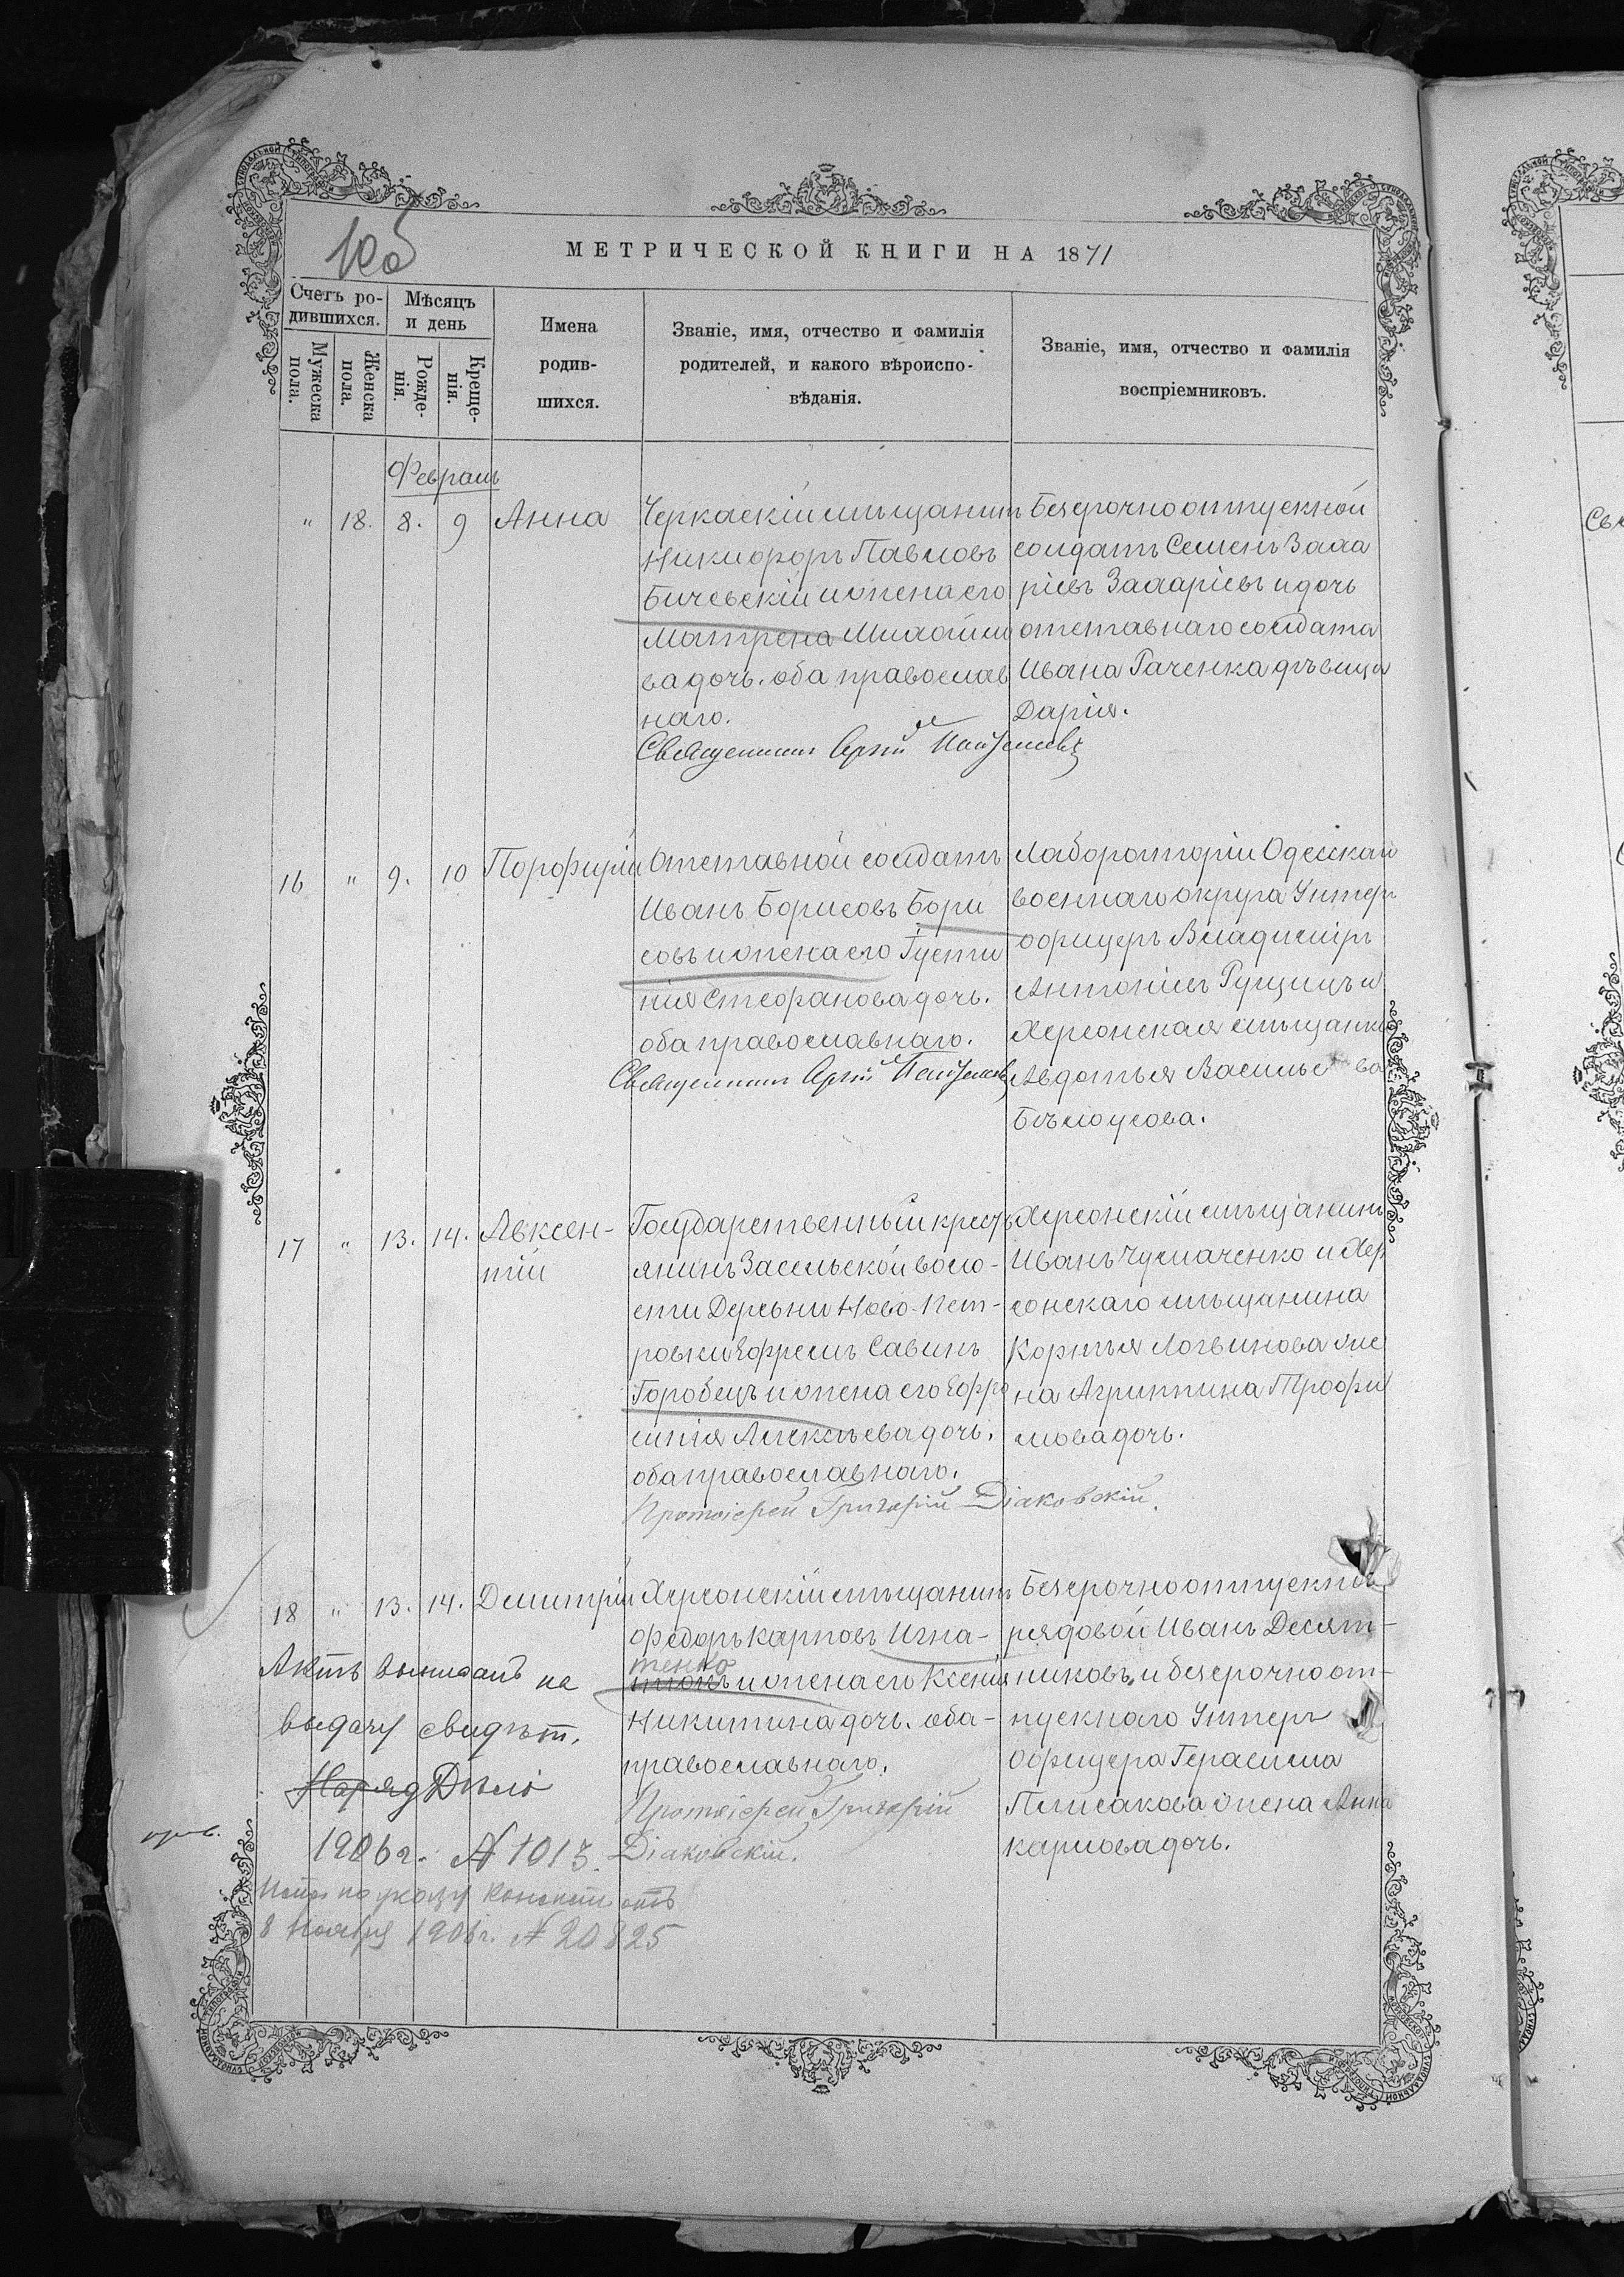 10 об
МЕТРИЧЕСКОЙ КНИГИ НА 1871
Счетъ ро-
дившихся.
Мужеска пола.
Женска пола.
Мѣсяцъ
и день
Рожде-
нія.
Креще-
нія.
Имена
родив-
шихся.
Званіе, имя, отчество и фамилія
родителей, и какого вѣроиспо-
вѣданія.
Званіе, имя, отчество и фамилія
воспріемниковъ.
Февраль
" 18. 8. 9 Анна
Черкаскій мѣщанинъ
Никифоръ Павловъ
Бичевскій и жена его
Матрена Михайло
ва дочь. оба православ
наго.
Священникъ
Безсрочноотпускной
солдатъ Семенъ Заха
ріевъ Захаріевъ и дочь
отставнаго солдата
Ивана Гаченка дѣвица
Дарія.
16 " 9. 10 Порфирій
Отставной солдатъ
Иванъ Борисовъ Бори
совъ и жена его Густи
нія Стефанова дочь.
оба православнаго.
Священникъ
Лабороторіи Одесскаго
военнаго округа Унтеръ
офицеръ Владиміръ
Антоніевъ Рущицъ и
Херсонская мѣщанка
Авдотья Васильева
Бѣлоусова.
17 " 13. 14. Авксен-
тій
Государственный кресть
янинъ Засельской воло-
сти Деревни Ново-Пет-
ровки Ефремъ Савинъ
Горобецъ и жена его Евфро
синія Алексѣева дочь.
оба православнаго.
Протоіерей Григорій Діаковскій.
Херсонскій мѣщанинъ
Иванъ Чумаченко и Хер
сонскаго мѣщанина
Корнѣя Логвинова же
на Агриппина Трофи
мова дочь.
18 " 13. 14. Димитрій
Херсонскій мѣщанинъ
Федоръ Карповъ Игна-
тенко
и жена его Ксенія
Никитина дочь. оба-
православнаго.
Протоіерей Григорій
Діаковскій.
Безсрочноотпускной
рядовой Иванъ Десят-
никовъ и безсрочноот-
пускнаго Унтеръ
Офицера Герасима
Плисакова жена Анна
Карпова дочь.
Актъ выписанъ на
выдачу свидѣт.
Наряд Дѣло
1906 г. № 1013.
по указу Консист. отъ
8 Ноября 1906 г. № 20825